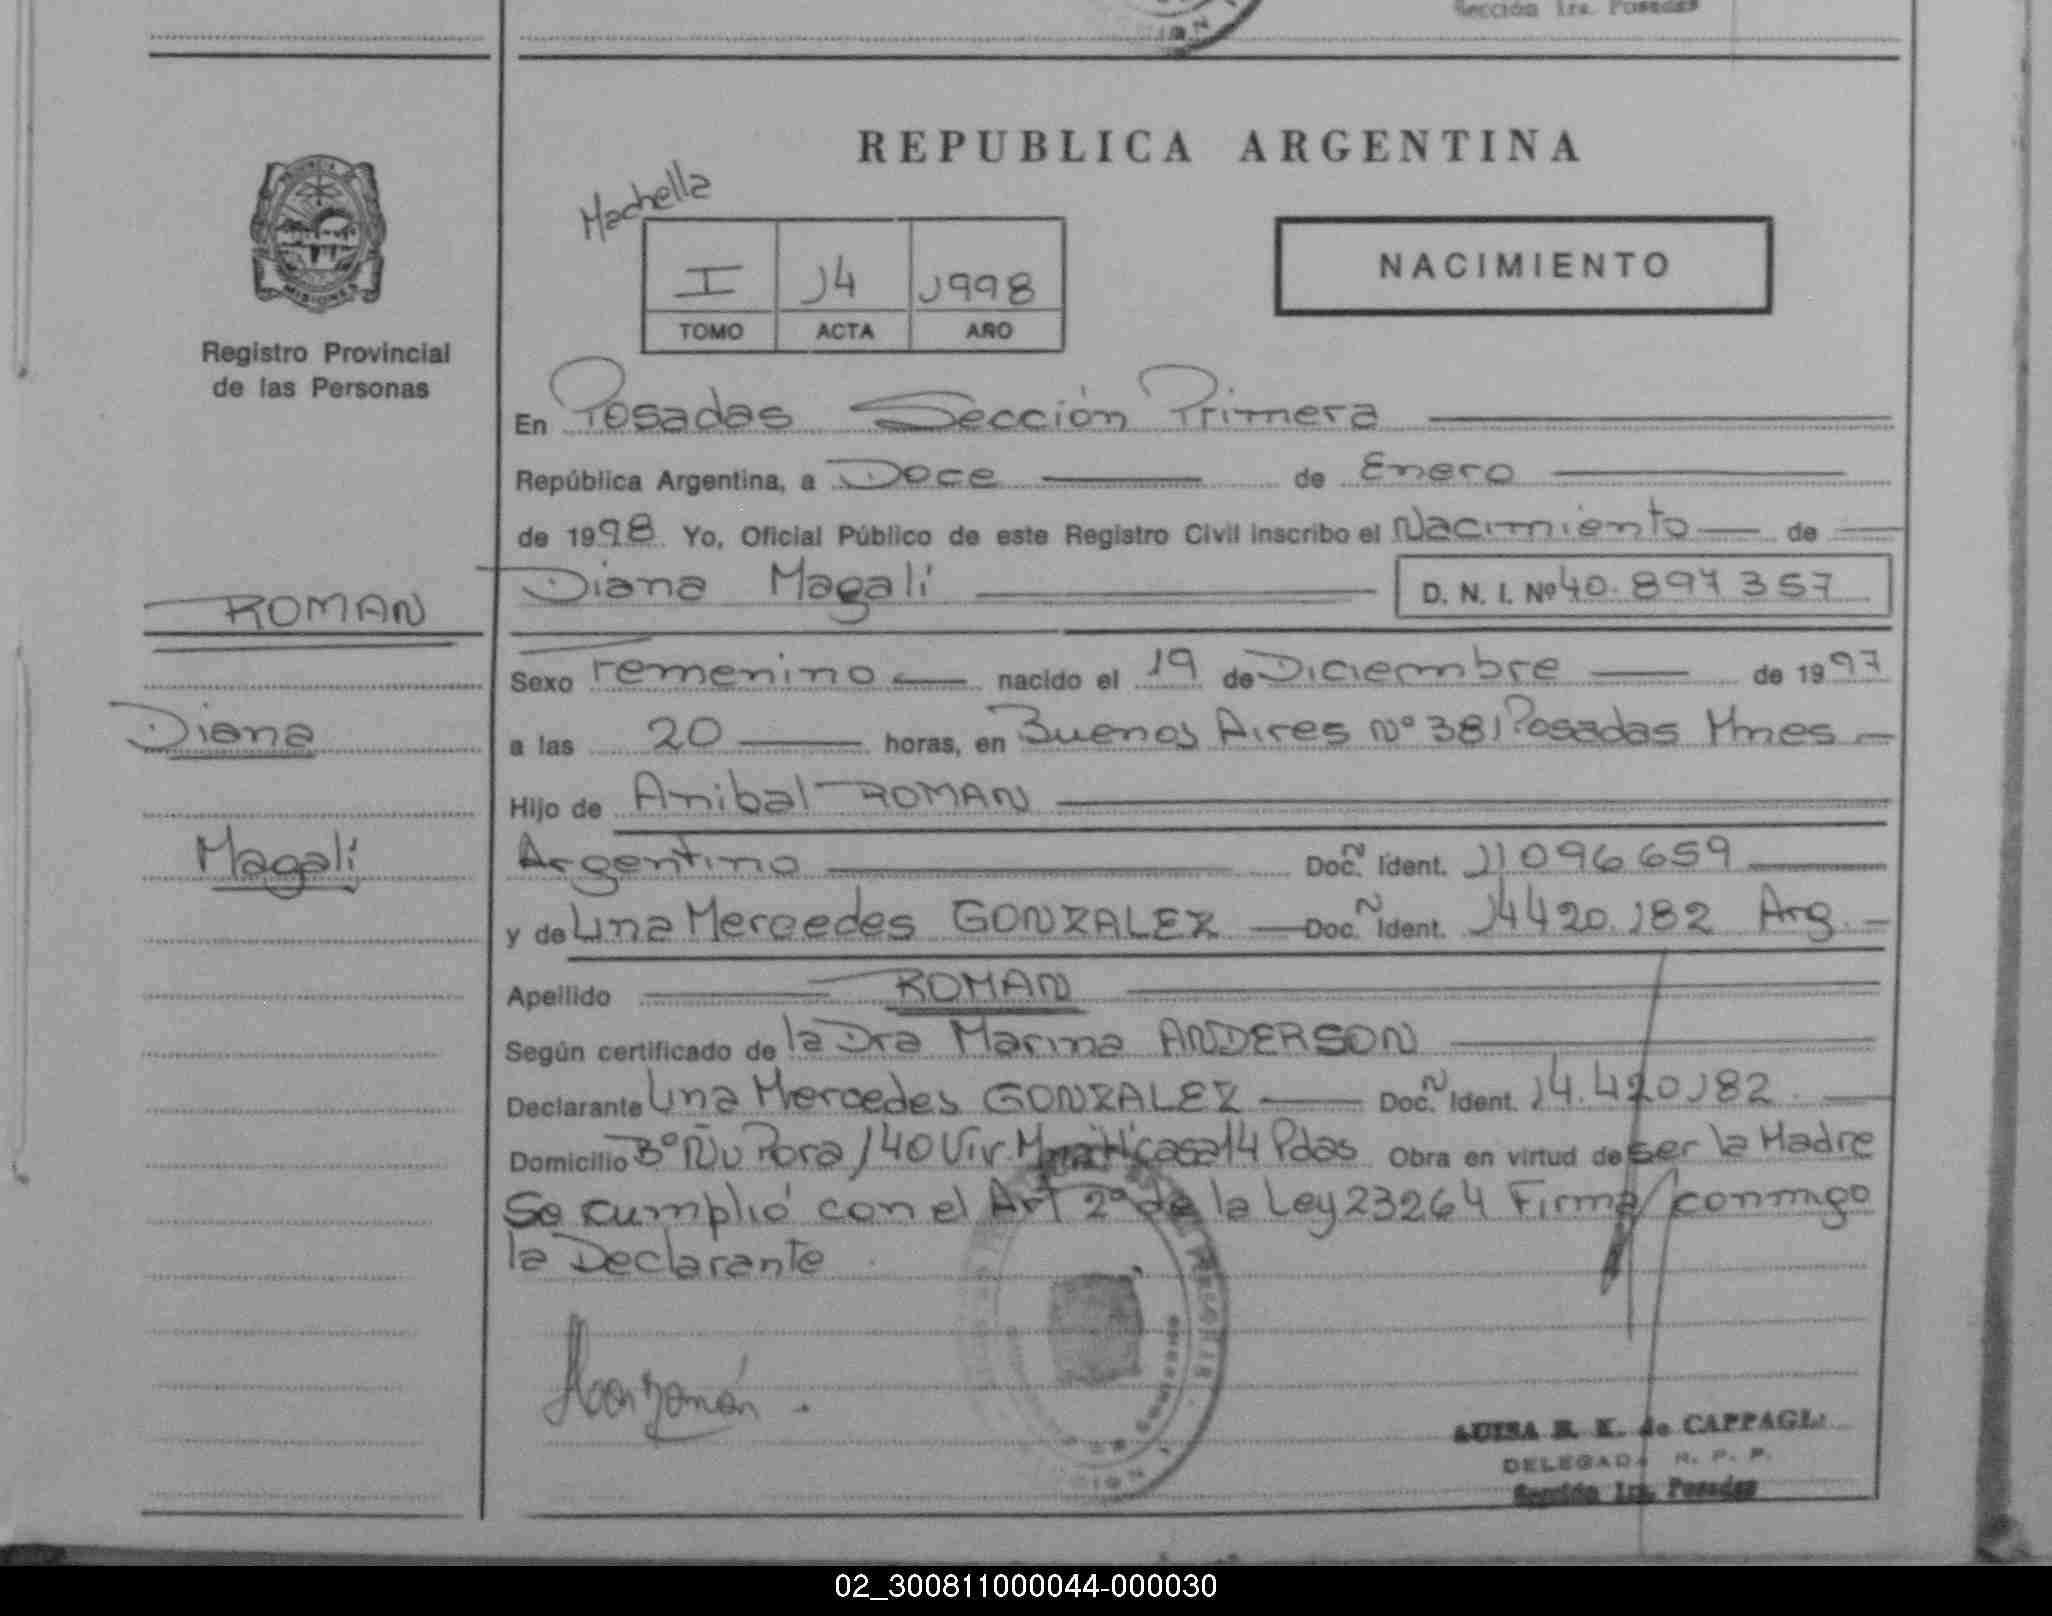 Sección 1ra. Posadas
REPUBLICA ARGENTINA
Machella
I 14 1998
TOMO ACTA AÑO
NACIMIENTO
MISIONES
Registro Provincial
de las Personas
En Posadas Sección Primera
República Argentina, a Doce de Enero
de 1998 Yo, Oficial Público de este Registro Civil inscribo el Nacimiento de
Diana Magalí D. N. I. Nº 40.897357
ROMAN
Sexo Femenino nacido el 19 de Diciembre de 1997
Diana
a las 20 horas, en Buenos Aires Nº 381 Posadas Mnes
Hijo de Anibal ROMAN
Magalí
Argentino Doc. N Ident. 11096659
y de Lina Mercedes GONZALEZ Doc. N Ident. 14420.182 Arg.
Apellido ROMAN
Según certificado de la Dra Marina ANDERSON
Declarante Lina Mercedes GONZALEZ Doc. N Ident. 14.420182.
Domicilio Bº Ñu Pora 140 Viv. casa 14 Pdas Obra en virtud de ser la Madre
Se cumplió con el Art 2º de la Ley 23264 Firma conmigo
la Declarante
LUISA R. K. de CAPPAGLI
DELEGADA R. P. P.
Sección 1ra. Posadas
02_300811000044-000030